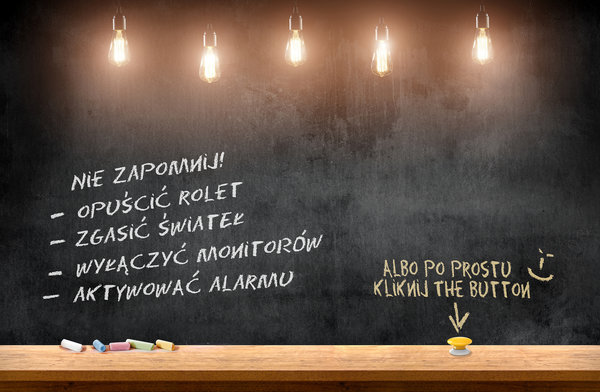 NIE ZAPOMNIJ!
– OPUŚCIĆ ROLET
– ZGASIĆ ŚWIATEŁ
– WYŁĄCZYĆ MONITORÓW
– AKTYWOWAĆ ALARMU
ALBO PO PROSTU :)
KLIKNIJ THE BUTTON